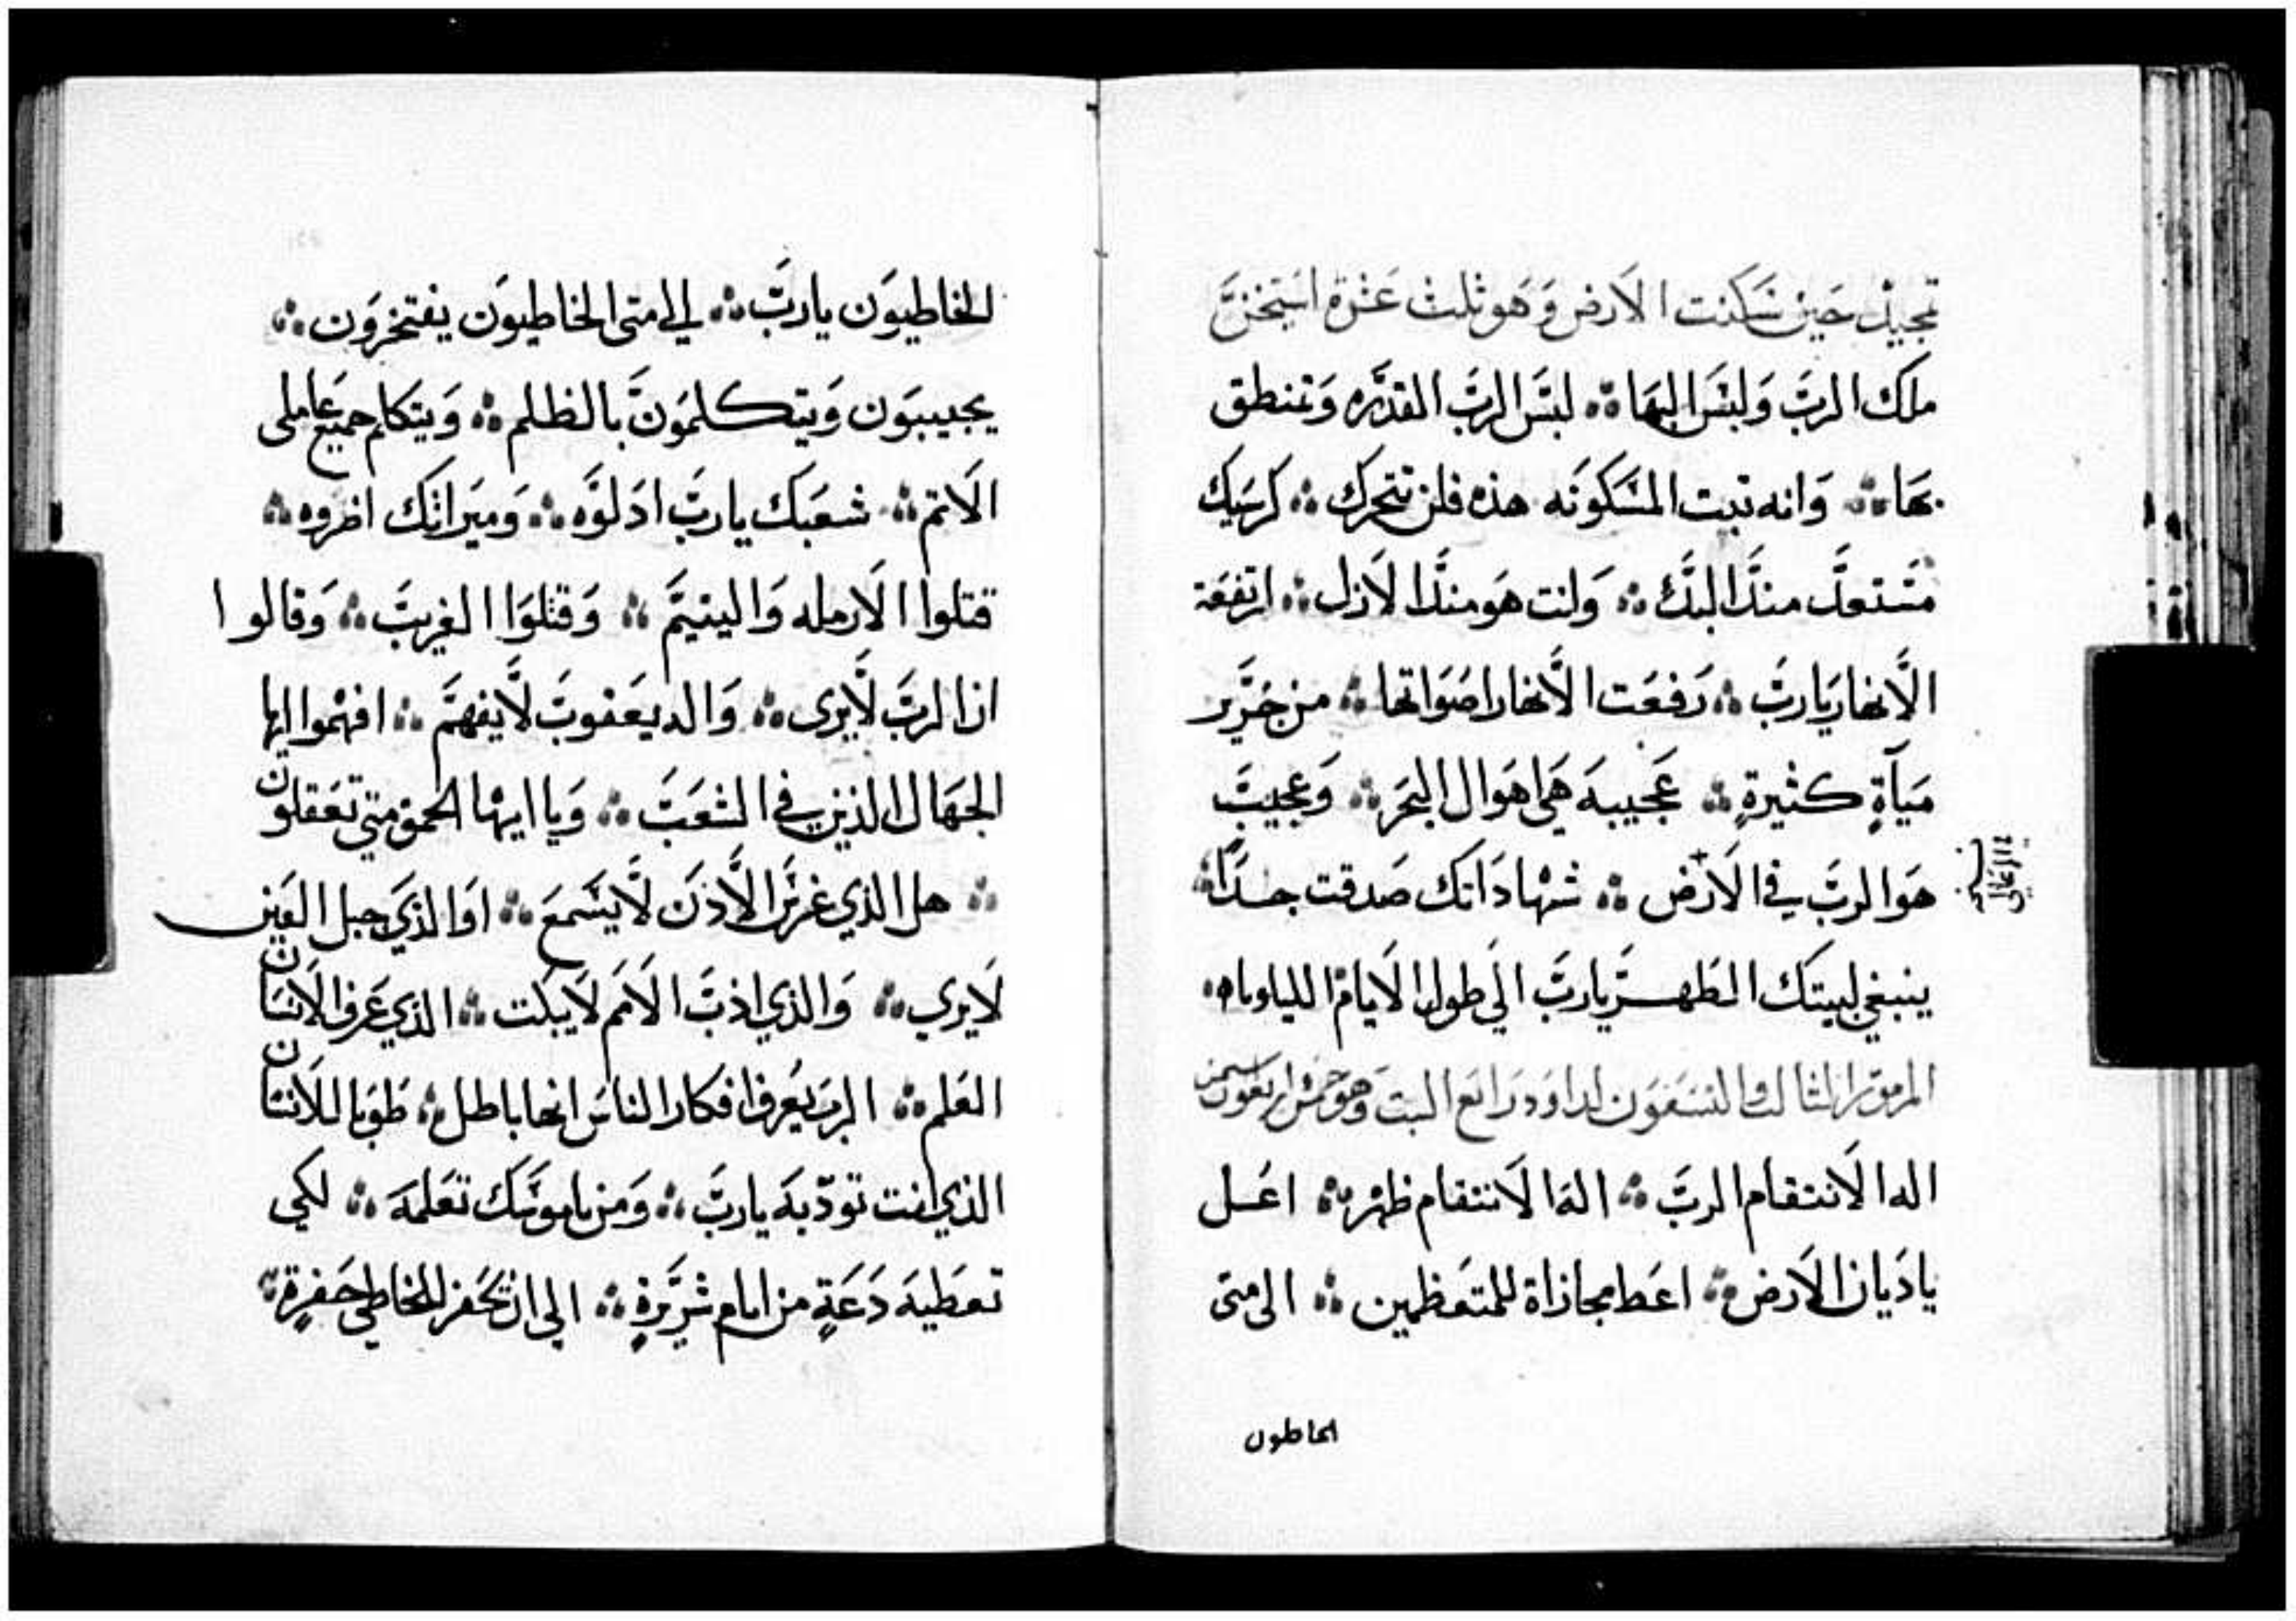 تمجيد حين سكنت الارض وَهَو ثلث عَشرة استيخنَّ
ملك الربَّ وَلبسَ البهَا ⁘ لبسَ الربَّ القدرَه وَتمنطق
بهَا ⁘ وَانه تبت المسَكونَه هذه فلن تتحرك ⁘ كرسَيك
مسَتعدَّ منذَ البدَّء ⁘ وَانت هوَ منذَ الاَزل ⁘ ارتفعَة
الاَنهار يَاربَّ ⁘ رَفعَت الاَنهار اصَوَاتها ⁘ من خَرَير
ميَآةٍ كثيرةٍ ⁘ عَجيبهَ هَي اهوَال البحَر ⁘ وَعجيبَ
هَوَ الربَّ في الاَرَض ⁘ شهَادَاتك صَدقت جدَاً ⁘
ينبغي لبيتَك الطَهر يَاربَّ الَي طول الاَيام ⁘ الليلويَاه
المزمَوَر الثالث وَالتسَعَون لداوَد رَابعَ السبتَ وَهوَ خمسَ اربعَون ستيخن
اله الاَنتقام الربَّ ⁘ الهَ الاَنتقام ظهَر ⁘ اعُل
يا دَيان الاَرض ⁘ اعَط مجازاة للمتعَظمين ⁘ الى متى
الخاطون
الخاطيوَن ياربَّ ⁘ الى متى الخاطيوَن يفتخرَون ⁘
يجيبيوَن وَيتكلمَونَ بالظلم ⁘ وَيتكلم جميعَ عَاملى
الاَتم ⁘ شعَبَك ياربَّ ادَلوَه ⁘ وَميَراتك اضروه ⁘
قتلوا الاَرمله وَاليتيمَّ ⁘ وَقتلوَا الغريبَّ ⁘ وَقالوا
ان الربَّ لاَيرى ⁘ وَاله يعَقوبَ لاَيفهمَّ ⁘ افهموا ايها
الجهَال الذين في الشعَبَ ⁘ وَيا ايهَا الحمق متي تعَقلوَن
⁘ هل الذي غرسَ الاَذنَ لاَيسَمعَ ⁘ اوَ الذيَ جبل العَين
لاَيرى ⁘ وَالذي ادبَّ الاَممَ لاَيبكت ⁘ الذي عَرف الاَنسَان
العَلم ⁘ الربَ يعُرف افكار الناسَ انها باطل ⁘ طَوَبا للاَنسَان
الذي انت تودّبهَ ياربَّ ⁘ وَمن ناموسَك تعَلمهَ ⁘ لكى
تعَطيهَ دَعَةٍ من ايام شرَيرةٍ ⁘ الي ان تحَفر للخاطي حَفرةٍ ⁘